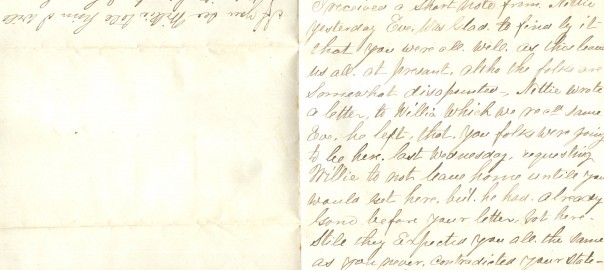 If you see Willie tell him I will
I received a Short Note from Nittie
yesterday Eve, Was Glad to find by it
that you were all well, as this leaves
us all at present, altho the folks are
Somewhat disapointed, Nittie wrote
a letter, to Willie Which we recd same
Eve. he left, that, you folks were going
to be here last Wednesday, requesting
Willie to not leave home untill you
would get here, but he has already
gone before your letter Got here.
Still they Expected you all the same
as you never contradicted your state-